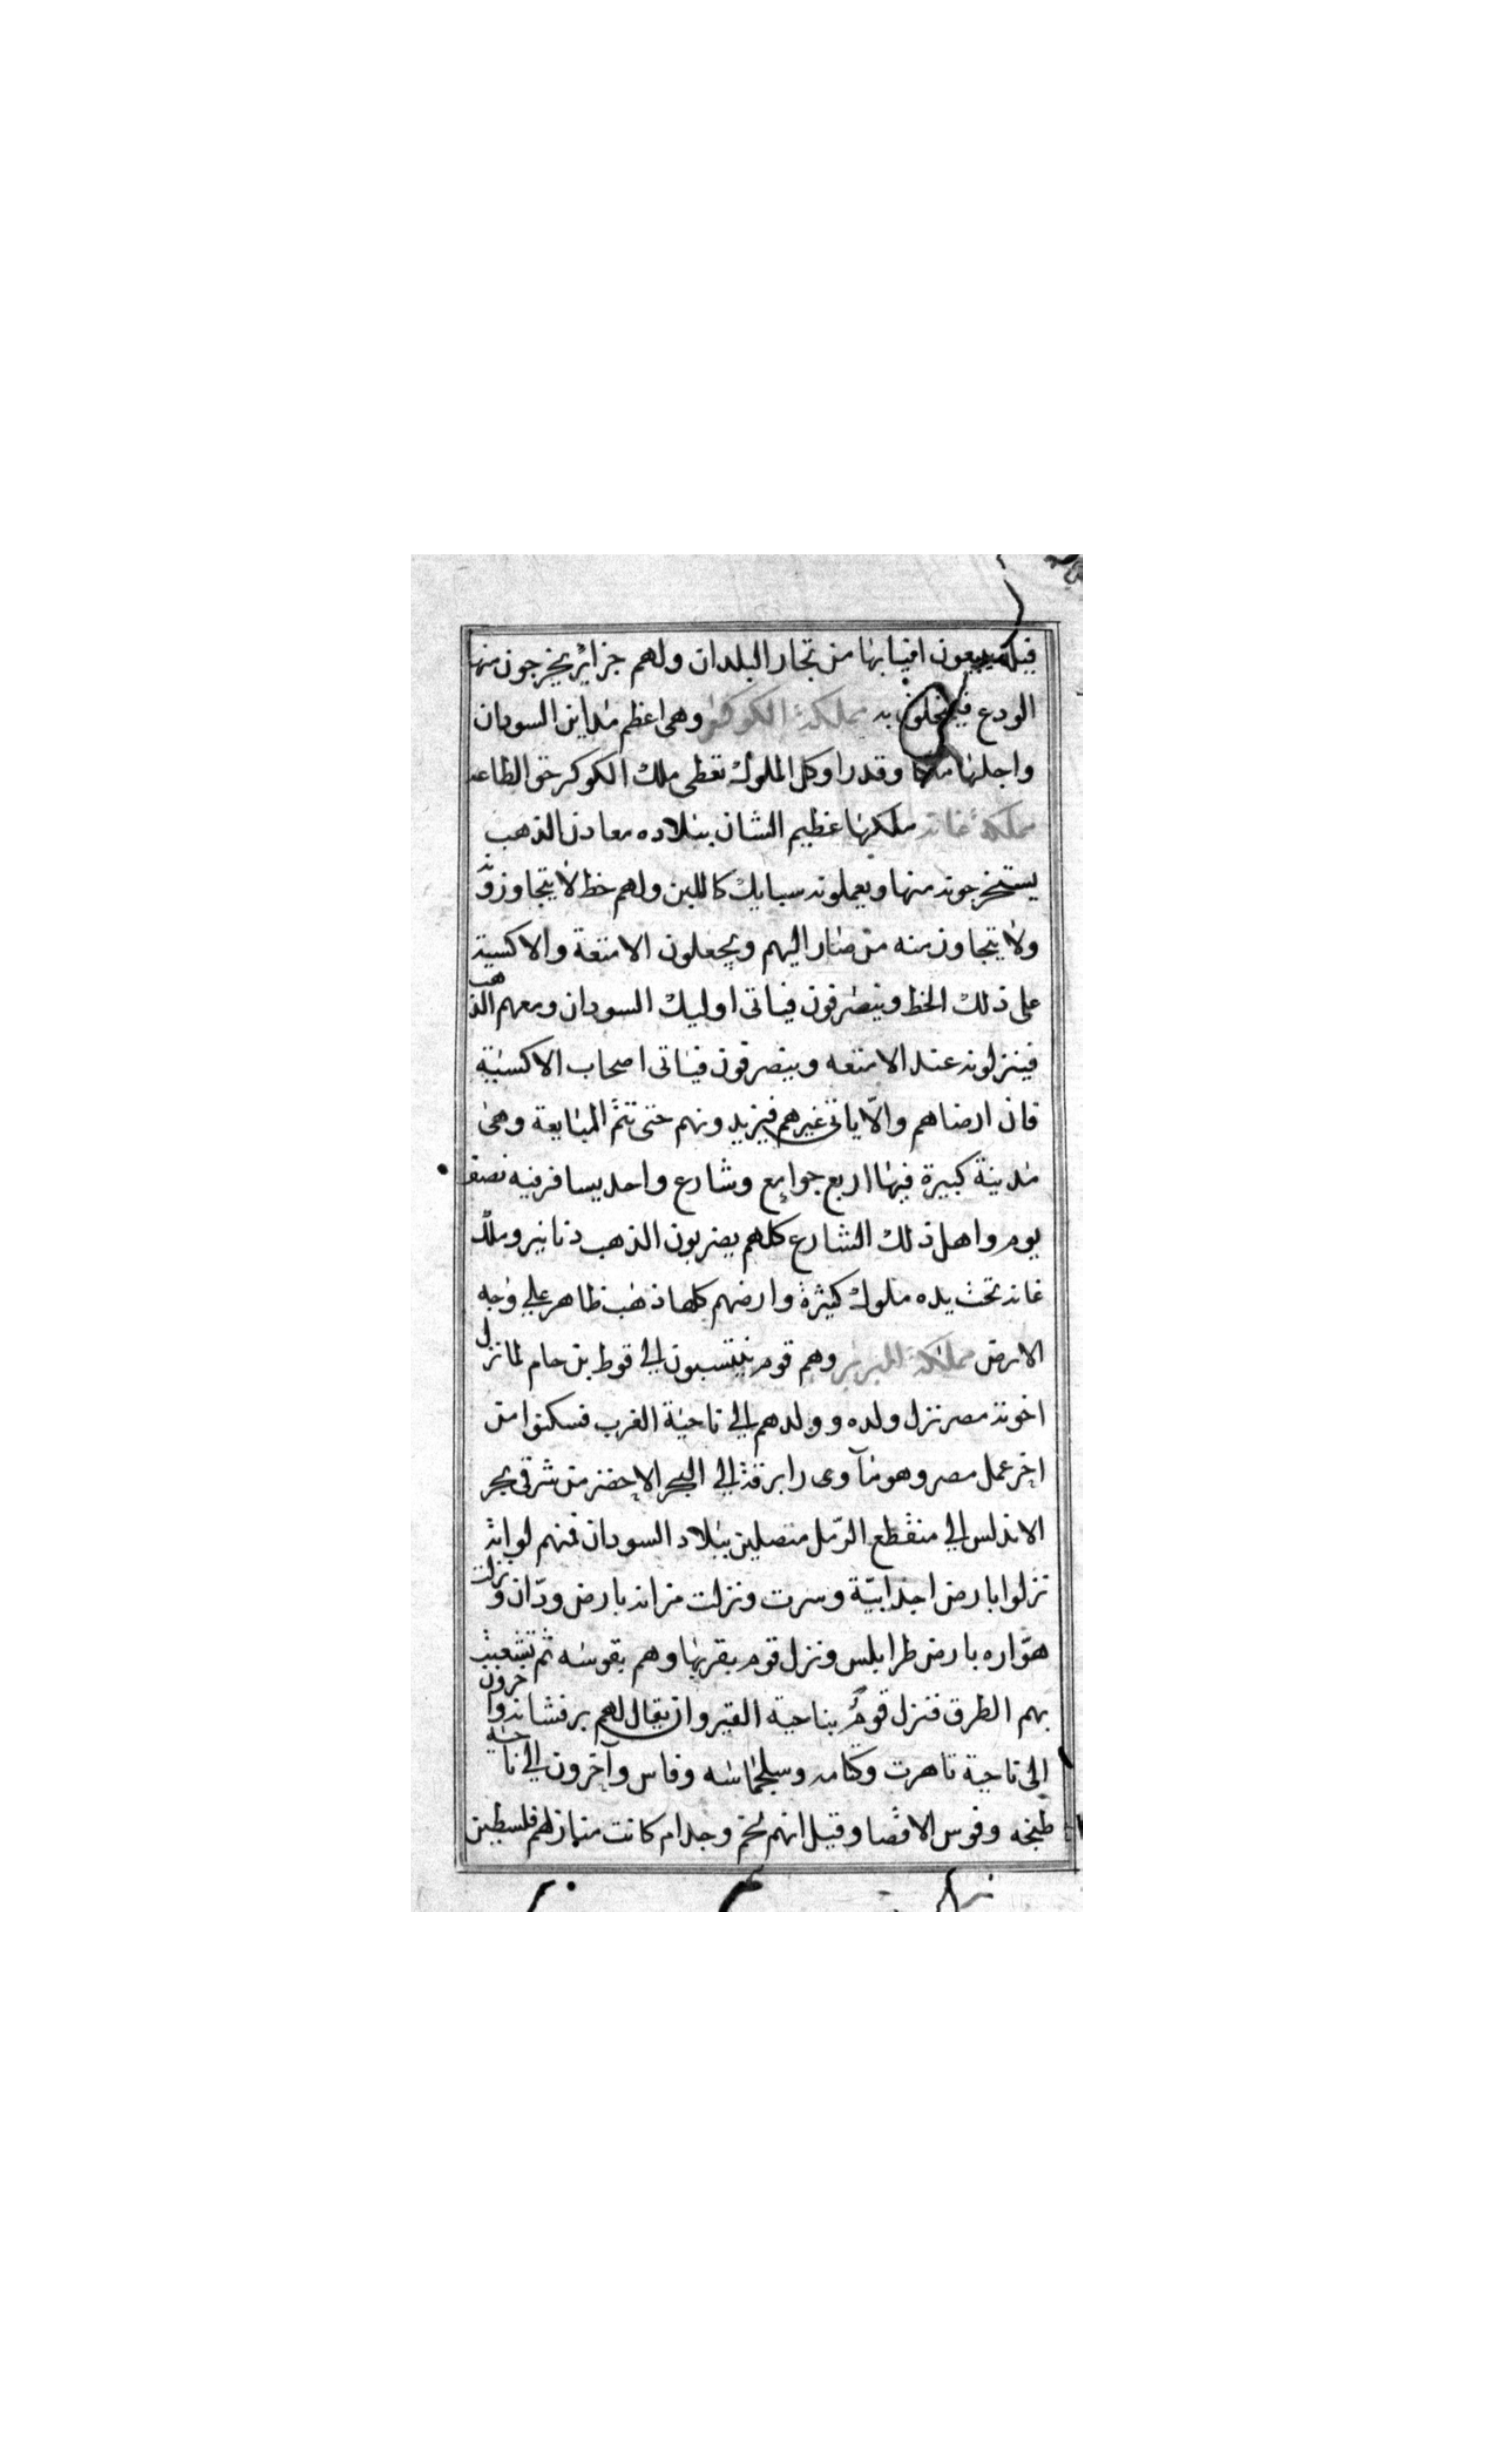 فيلة يبيعون انيابها من تجار البلدان ولهم جزاير يخرجون منها
الودع فيتحلون به مملكة الكوكو وهى اعظم مداين السودان
واجلها ملكا وقدرا وكل الملوك تعطى ملك الكوكر حق الطاعه
مملكة غانه ملكها عظيم الشان ببلاده معادن الذهب
يستخرجونه منها ويعملونه سبايك كاللبن ولهم خط لا يتجاوزونه
ولا يتجاوز منه من صار اليهم ويجعلون الامتعة والاكسية
على ذلك الخط وينصرفون فياتى اوليك السودان ومعهم الذهب
فينزلونه عند الامتعه وينصرفون فياتى اصحاب الاكسية
فان ارضاهم والّا ياتى غيرهم فيزيدونهم حتى تتمّ المبايعة وهى
مدينة كبيرة فيها اربع جوامع وشارع واحد يسافر فيه نصف
يوم واهل ذلك الشارع كلهم يضربون الذهب دنانير وملك
غانه تحت يده ملوك كثيرة وارضهم كلها ذهب ظاهر على وجه
الارض مملكة البربر وهم قوم ينتسبون الى قوط بن حام لما نزل
اخوته مصر نزل ولده وولدهم الى ناحية الغرب فسكنوا من
اخر عمل مصر وهو مآوى رابرقة الى البحر الاخضر من شرقى بحر
الاندلس الى منقطع الرّمل متصلين ببلاد السودان فمنهم لواته
نزلوا بارض اجدابيّة وسرت ونزلت مزاته بارض ودّان ونزلت
هوّاره بارض طرابلس ونزل قوم بقربها وهم بقوسه ثم تشعبت
بهم الطرق فنزل قومٌ بناحية القيروان يقال لهم برفشانه واخرون
الى ناحية تاهرت وكتامه وسلجماسه وفاس وآخرون الى ناحية
طنجه وفوس الاقصا وقيل انهم لخم وجدام كانت منازلهم فلسطين